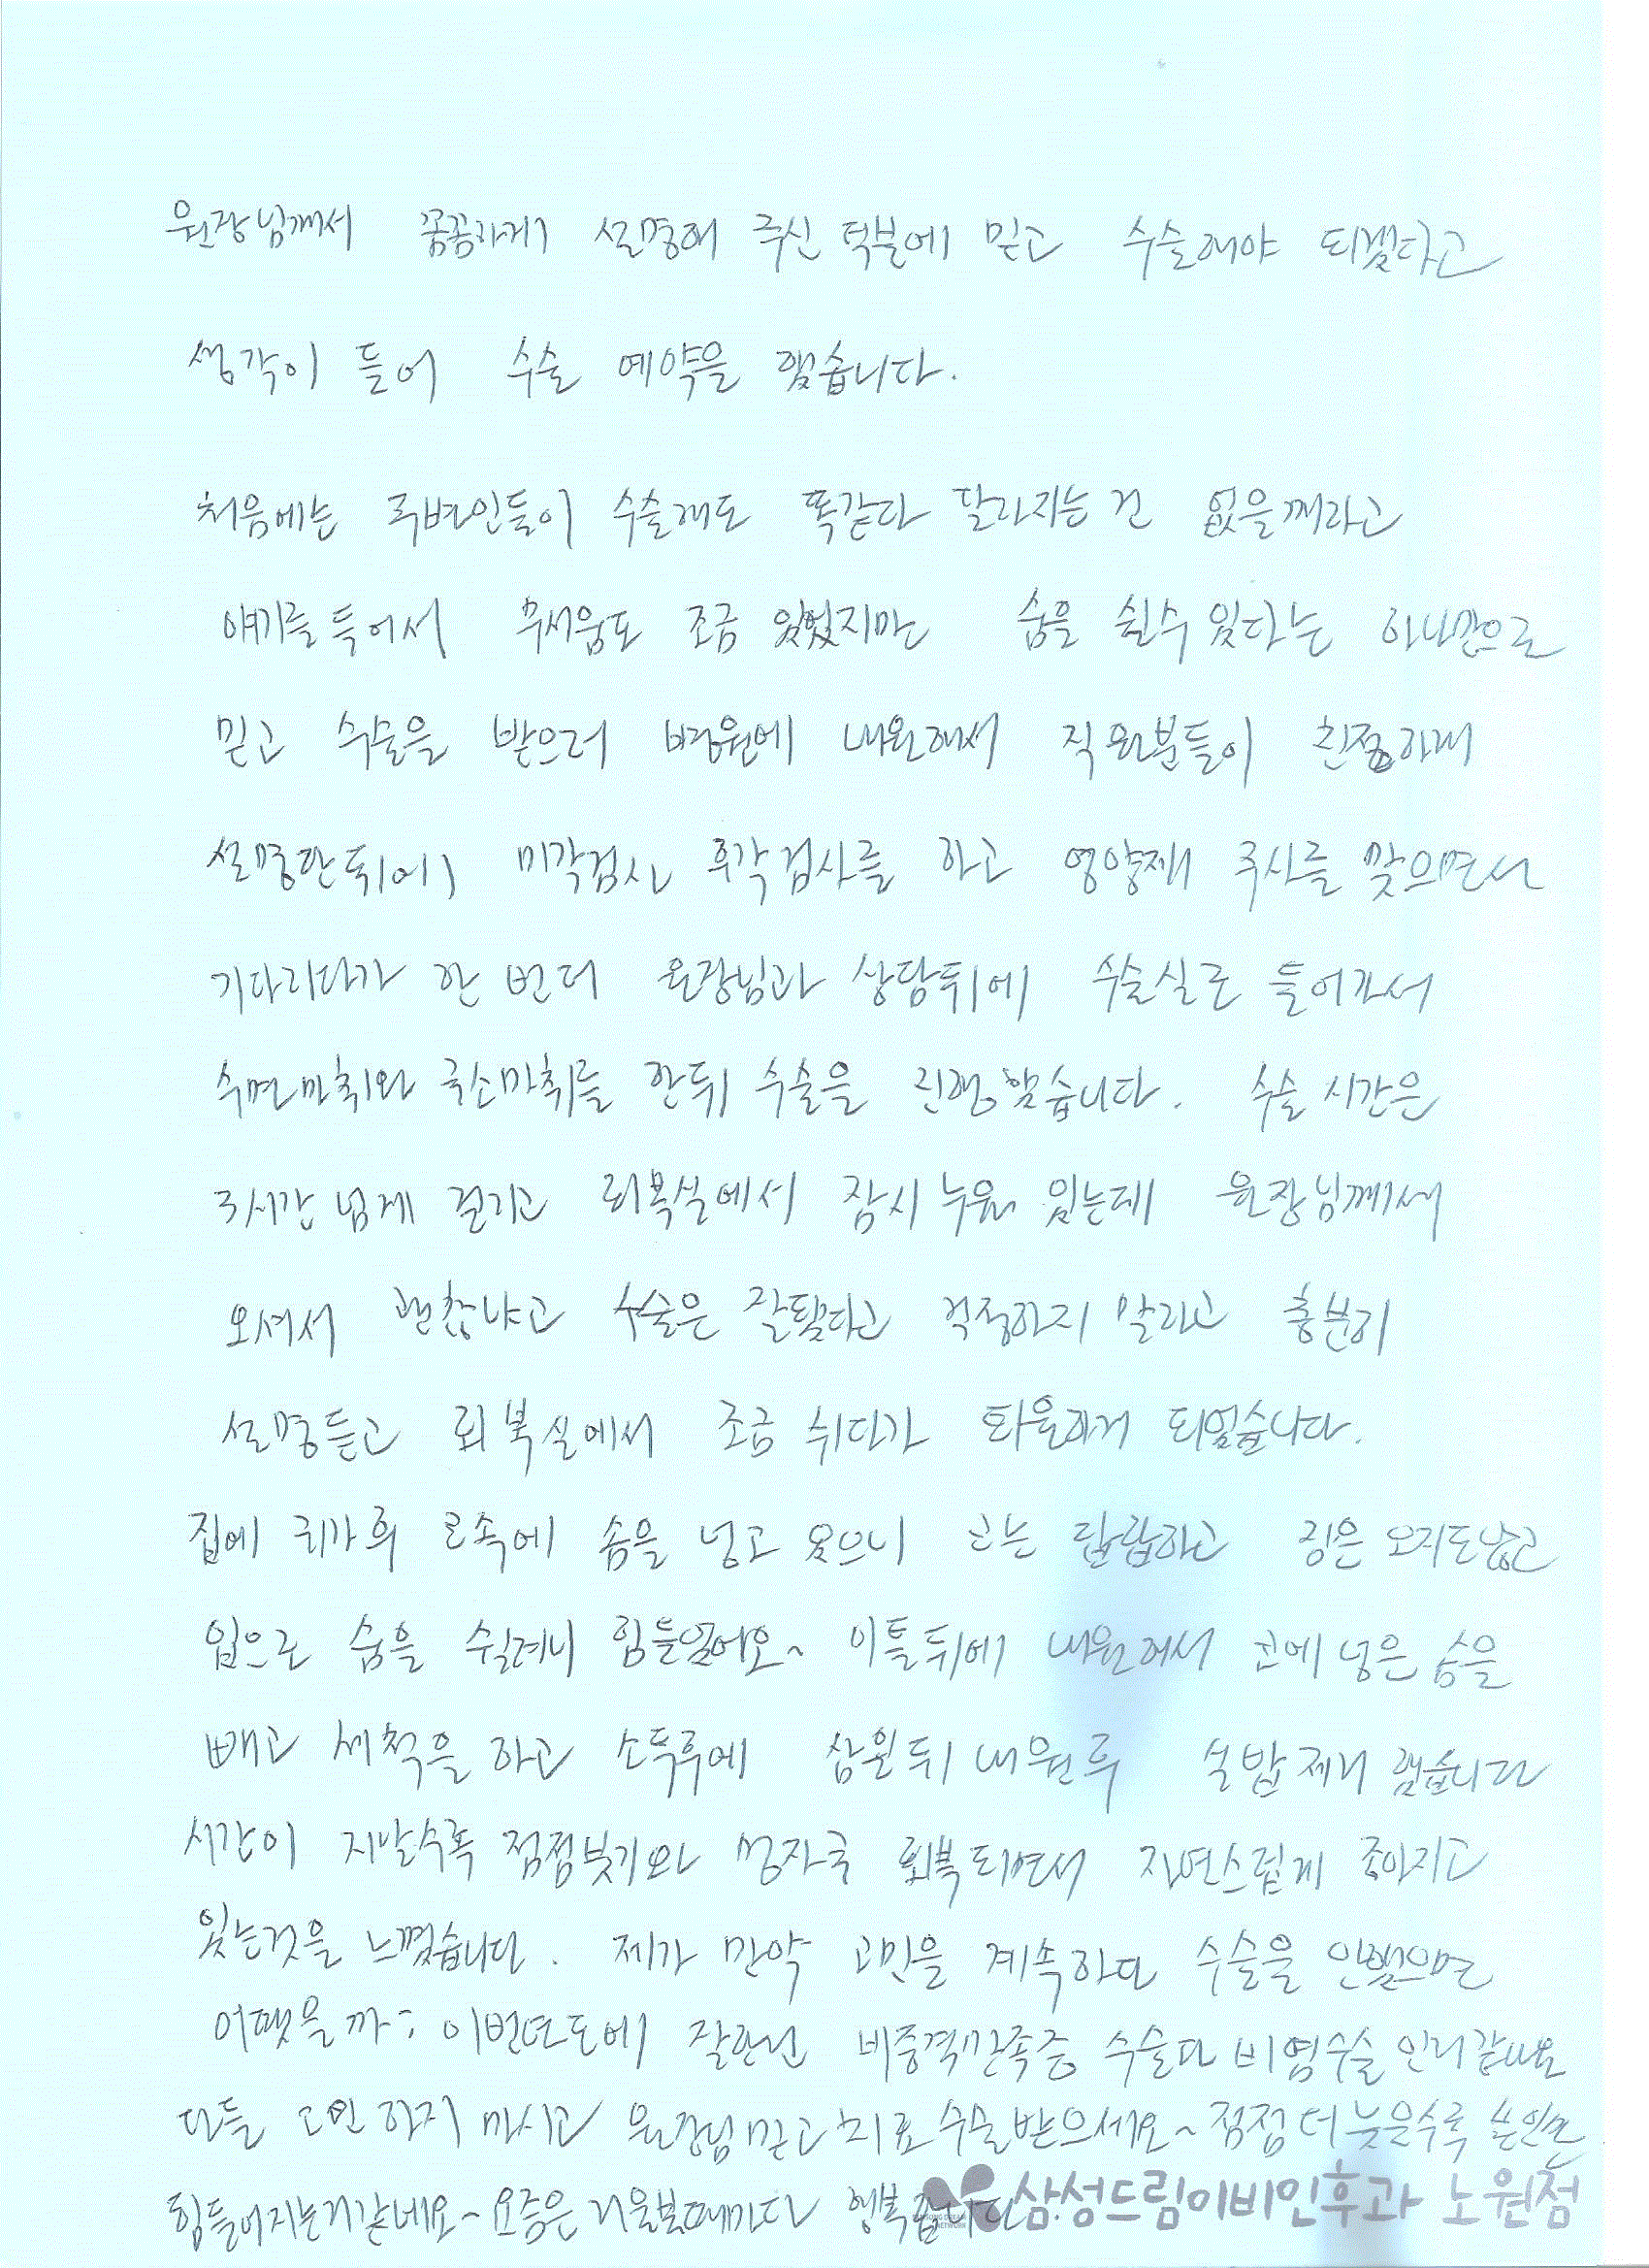 원장님께서 꼼꼼하게 설명해 주신 덕분에 믿고 수술해야 되겠다고
생각이 들어 수술 예약을 했습니다.
처음에는 주변인들이 수술해도 똑같다 달라지는 건 없을꺼라고
얘기를 들어서 무서움도 조금 있었지만 숨을 쉴수 있다는 하나만으로
믿고 수술을 받으러 병원에 내원해서 직원분들이 친절하게
설명한뒤에 미각검사 후각검사를 하고 영양제 주사를 맞으면서
기다리다가 한 번더 원장님과 상담뒤에 수술실로 들어가서
수면마취와 국소마취를 한뒤 수술을 진행했습니다. 수술 시간은
3시간 넘게 걸리고 회복실에서 잠시 누워 있는데 원장님께서
오셔서 괜찮냐고 수술은 잘됬다고 걱정하지 말라고 충분히
설명듣고 회복실에서 조금 쉬다가 퇴원하게 되었습니다.
집에 귀가후 코속에 솜을 넣고 있으니 코는 답답하고 잠은 오지도않고
입으로 숨을 쉴려니 힘들었어요~ 이틀뒤에 내원해서 코에 넣은 솜을
빼고 세척을 하고 소독후에 삼일뒤 내원후 실밥제거 했습니다
시간이 지날수록 점점붓기와 멍자국 회복되면서 자연스럽게 좋아지고
있는것을 느꼈습니다. 제가 만약 고민을 계속하다 수술을 안했으면
어땟을까; 이번년도에 잘한건 비중격만곡증 수술과 비염수술 인거같아요
다들 고민하지 마시고 원장님믿고 치료 수술받으세요~ 점점 더 늦을수록 본인만
힘들어지는거같네요~ 요즘은 거울볼때마다 행복합니다.
삼성드림이비인후과 노원점